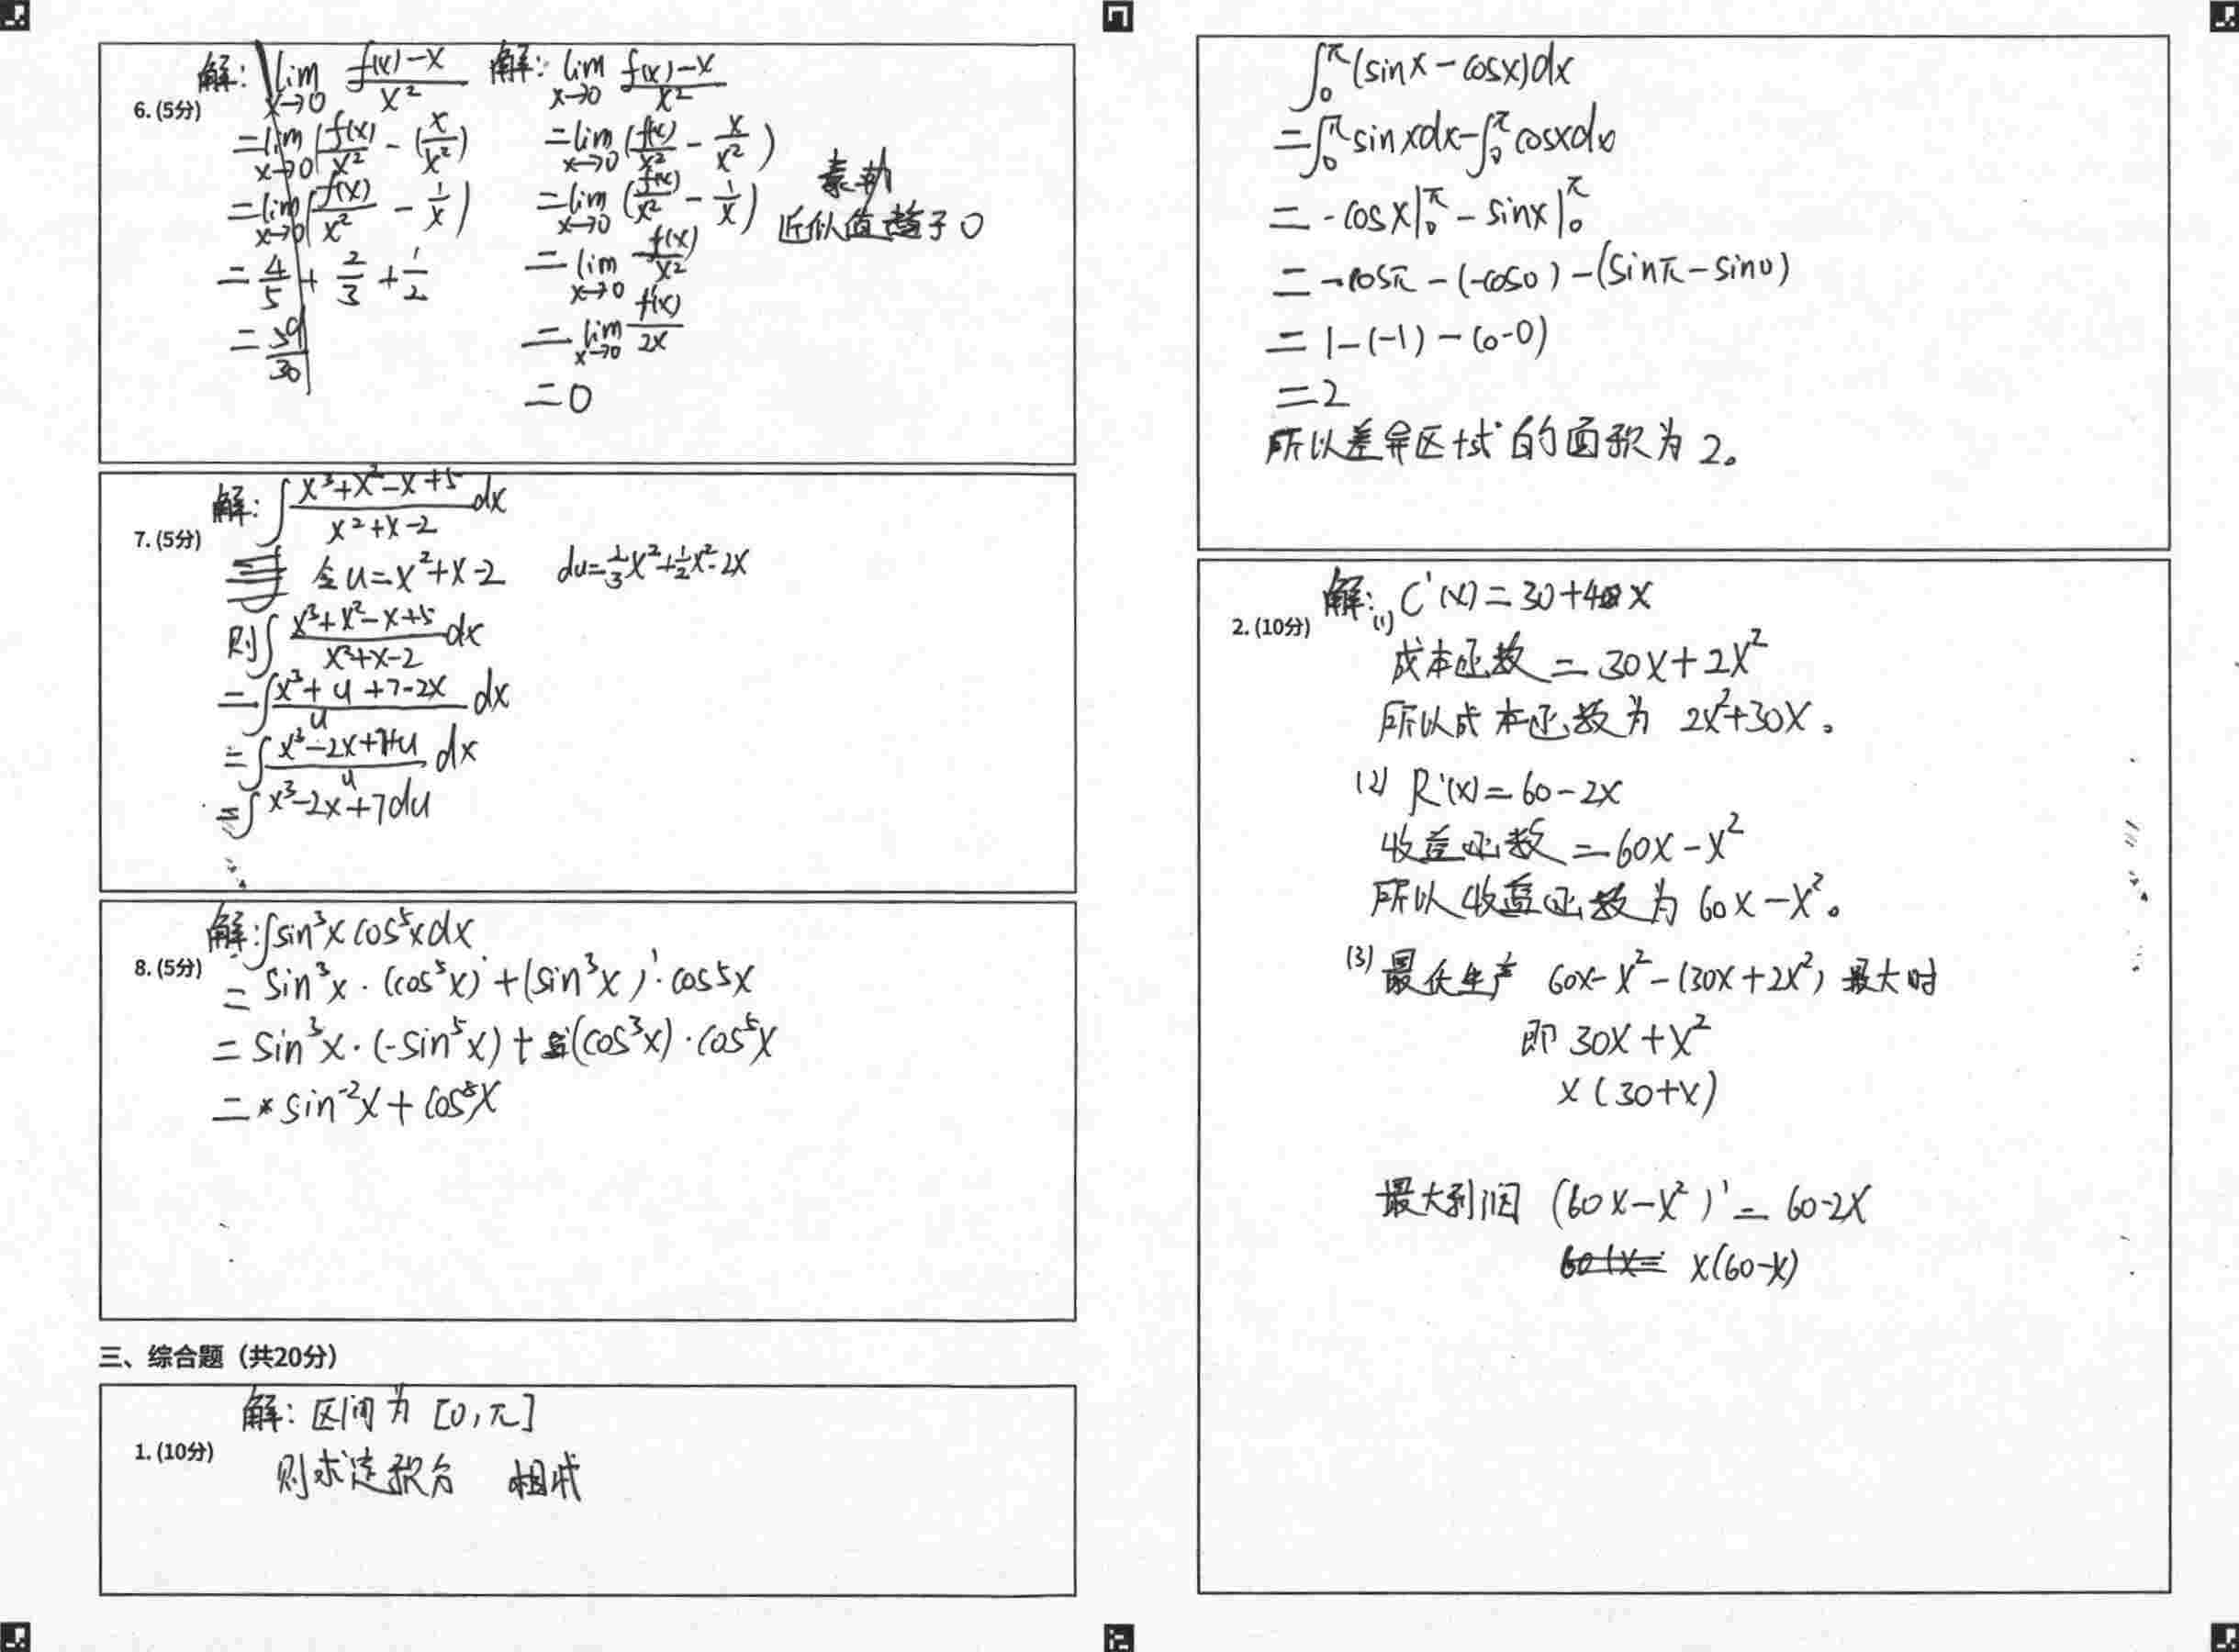 6. (5分)
解: lim x→0 (f(x)-x)/x²
= lim x→0 (f(x)/x² - (x/x²)
= lim x→0 (f(x)/x² - 1/x)
= 4/5 + 2/3 + 1/2
= 59/30
解: lim x→0 (f(x)-x)/x²
= lim x→0 (f(x)/x² - x/x²)
= lim x→0 (f(x)/x² - 1/x)
= lim x→0 f(x)/x²
= lim x→0 f'(x)/2x
= 0
近似值趋于0
7. (5分)
解: ∫ (x³+x²-x+5)/(x²+x-2) dx
令 u=x²+x-2 du=1/3x²+1/2x²-2x
则∫ (x³+x²-x+5)/(x²+x-2) dx
= ∫ (x³+u+7-2x)/u dx
= ∫ (x³-2x+7+u)/u dx
= ∫ x³-2x+7du
8. (5分)
解: ∫sin³x cos⁵x dx
= sin³x · (cos⁵x)' + (sin³x)' · cos5x
= sin³x · (-sin⁵x) + (cos³x) · cos⁵x
= sin⁻²x + cos⁸x
三、综合题（共20分）
1. (10分)
解: 区间为 [0, π]
则求定积分 相减
∫₀^π (sinx - cosx)dx
= ∫₀^π sinxdx - ∫₀^π cosxdx
= -cosx|₀^π - sinx|₀^π
= -cosπ - (-cos0) - (sinπ - sin0)
= 1-(-1) - (0-0)
= 2
所以差异区域的面积为 2。
2. (10分)
解: (1) C'(x) = 30+4x
成本函数 = 30x+2x²
所以成本函数为 2x²+30x。
(2) R'(x) = 60-2x
收益函数 = 60x-x²
所以收益函数为 60x-x²。
(3) 最优生产 60x-x²-(30x+2x²) 最大时
即 30x+x²
x(30+x)
最大利润 (60x-x²)' = 60-2x
x(60-x)